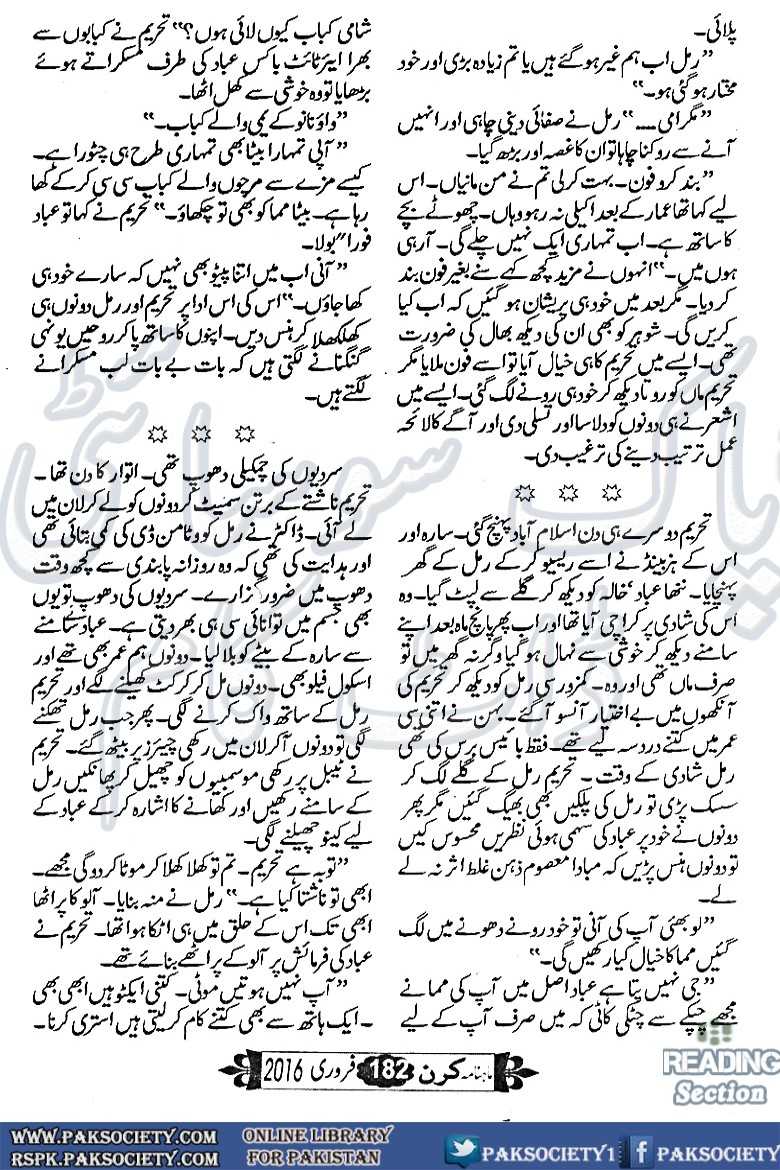 پلائی۔
”رمل اب ہم غیر ہو گئے ہیں یا تم زیادہ بڑی اور خود
مختار ہو گئی ہو۔“
”مگر امی۔۔۔۔“ رمل نے صفائی دینی چاہی اور انہیں
آنے سے روکنا چاہا تو ان کا غصہ اور بڑھ گیا۔
”بند کرو فون۔ بہت کر لی تم نے من مانیاں۔ اس
لیے کہا تھا عمار کے بعد اکیلی نہ رہو وہاں۔ چھوٹے بچے
کا ساتھ ہے۔ اب تمہاری ایک نہیں چلے گی۔ آرہی
ہوں میں۔“ انہوں نے مزید کچھ کہے سنے بغیر فون بند
کر دیا۔ مگر بعد میں خود ہی پریشان ہو گئیں کہ اب کیا
کریں گی۔ شوہر کو بھی ان کی دیکھ بھال کی ضرورت
تھی۔ ایسے میں تحریم کا ہی خیال آیا تو اسے فون ملایا مگر
تحریم ماں کو روتا دیکھ کر خود ہی رونے لگ گئی۔ ایسے میں
اشعر نے ہی دونوں کو دلاسا اور تسلی دی اور آگے کا لائحہ
عمل ترتیب دینے کی ترغیب دی۔
☼ ☼ ☼
تحریم دوسرے ہی دن اسلام آباد پہنچ گئی۔ سارہ اور
اس کے ہزبینڈ نے اسے ریسیو کر کے رمل کے گھر
پہنچایا۔ ننھا عباد‘ خالہ کو دیکھ کر گلے سے لپٹ گیا۔ وہ
اس کی شادی پر کراچی آیا تھا اور اب پھر پانچ ماہ بعد اپنے
سامنے دیکھ کر خوشی سے نہال ہو گیا وگرنہ گھر میں تو
صرف ماں تھی اور وہ۔ کمزور سی رمل کو دیکھ کر تحریم کی
آنکھوں میں بے اختیار آنسو آ گئے۔ بہن نے اتنی سی
عمر میں کتنے درد سہ لیے تھے۔ فقط بائیس برس کی تھی
رمل شادی کے وقت۔ تحریم رمل کے گلے لگ کر
سسک پڑی تو رمل کی پلکیں بھی بھیگ گئیں مگر پھر
دونوں نے خود پر عباد کی سہمی ہوئی نظریں محسوس کیں
تو دونوں ہنس پڑیں کہ مبادا معصوم ذہن غلط اثر نہ لے
لے۔
”لو بھئی آپ کی آنی تو خود رونے دھونے میں لگ
گئیں مما کا خیال کیا رکھیں گی۔“
”جی نہیں پتا ہے عباد اصل میں آپ کی مما نے
مجھے چپکے سے چٹکی کاٹی کہ میں صرف آپ کے لیے
شامی کباب کیوں لائی ہوں؟“ تحریم نے کبابوں سے
بھرا ایئر ٹائٹ باکس عباد کی طرف مسکراتے ہوئے
بڑھایا تو وہ خوشی سے کھل اٹھا۔
”واؤ نانو کے یمی والے کباب۔“
”آپی تمہارا بیٹا بھی تمہاری طرح ہی چٹورا ہے۔
کیسے مزے سے مرچوں والے کباب سی سی کر کے کھا
رہا ہے۔ بیٹا مما کو بھی تو چکھاؤ۔“ تحریم نے کہا تو عباد
فورا″ بولا۔
”آنی اب میں اتنا پیٹو بھی نہیں کہ سارے خود ہی
کھا جاؤں۔“ اس کی اس ادا پر تحریم اور رمل دونوں ہی
کھلکھلا کر ہنس دیں۔ اپنوں کا ساتھ پا کر روحیں یونہی
گنگنانے لگتی ہیں کہ بات بے بات لب مسکرانے
لگتے ہیں۔
☼ ☼ ☼
سردیوں کی چمکیلی دھوپ تھی۔ اتوار کا دن تھا۔
تحریم ناشتے کے برتن سمیٹ کر دونوں کو لے کر لان میں
لے آئی۔ ڈاکٹر نے رمل کو وٹامن ڈی کی کمی بتائی تھی
اور ہدایت کی تھی کہ وہ روزانہ پابندی سے کچھ وقت
دھوپ میں ضرور گزارے۔ سردیوں کی دھوپ تو یوں
بھی جسم میں توانائی سی ہی بھر دیتی ہے۔ عباد سامنے
سے سارہ کے بیٹے کو بلا لیا۔ دونوں ہم عمر بھی تھے اور
اسکول فیلو بھی۔ دونوں مل کر کرکٹ کھیلنے لگے اور تحریم
رمل کے ساتھ واک کرنے لگی۔ پھر جب رمل تھکنے
لگی تو دونوں آ کر لان میں رکھی چیئرز پر بیٹھ گئے۔ تحریم
نے ٹیبل پر رکھی موسمبیوں کو چھیل کر پھانکیں رمل
کے سامنے رکھیں اور کھانے کا اشارہ کر کے عباد کے
لیے کینو چھیلنے لگی۔
”توبہ ہے تحریم۔ تم تو کھلا کھلا کر موٹا کر دو گی مجھے۔
ابھی تو ناشتا کیا ہے۔“ رمل نے منہ بنایا۔ آلو کا پراٹھا
ابھی تک اس کے حلق میں ہی اٹکا ہوا تھا۔ تحریم نے
عباد کی فرمائش پر آلو کے پراٹھے بنائے تھے۔
”آپ نہیں ہوتیں موٹی۔ کتنی ایکٹو ہیں ابھی بھی
۔ ایک ہاتھ سے بھی کتنے کام کر لیتی ہیں استری کرنا۔
ماہنامہ کرن 182 فروری 2016
پاک سوسائٹی
ڈاٹ کام
READING
Section
WWW.PAKSOCIETY.COM
RSPK.PAKSOCIETY.COM
ONLINE LIBRARY
FOR PAKISTAN
PAKSOCIETY1
PAKSOCIETY